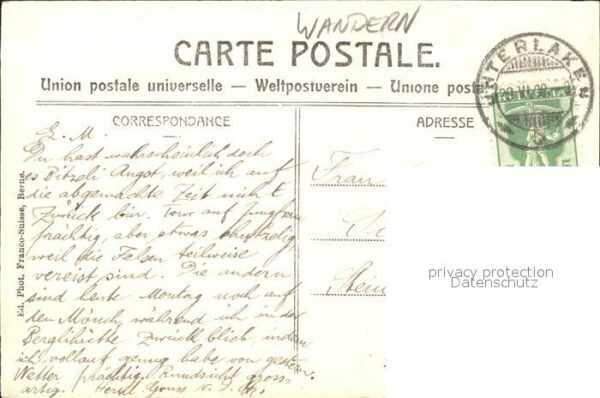 WANDERN
CARTE POSTALE.
Union postale universelle — Weltpostverein — Unione posta
INTERLAKEN
CORRESPONDANCE
ADRESSE
L. M.
Du hast wahrscheinlich doch
es Bitzeli Angst, weil ich auf
die abgemachte Zeit nicht
zurück bin. Tour auf Jungfrau
prächtig, aber etwas
weil die Felsen teilweise
vereist sind. Die andern
sind heute Montag noch auf
den Mönch, während ich in der
Berglihütte zurück blieb, indem
ich vollauf genug habe von gestern.
Wetter prächtig. Rundsicht gross-
artig. Herzl. Gruss
Frau
Stein
Ed. Phot. Franco-Suisse, Berne.
5
privacy protection
Datenschutz